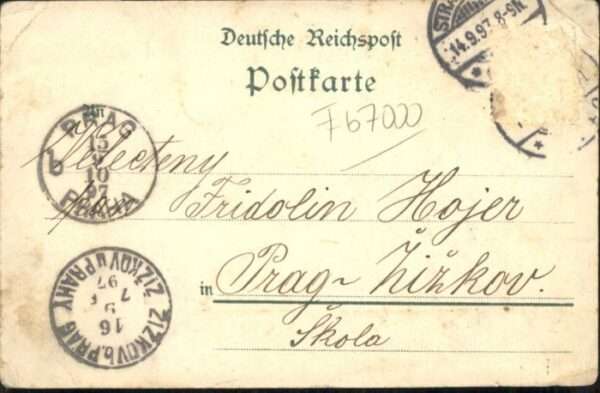 Deutsche Reichspost
Postkarte
STRA
14.9.97. 8-9N.
F 67000
An
PRAG
15
9
10
97
b
PRAHA
Velecteny
Fridolin Hojer
in Prag-Žižkov.
Škola
ŽIŽKOV U PRAHY
ŽIŽKOV b. PRAG
16
9
7 F
97